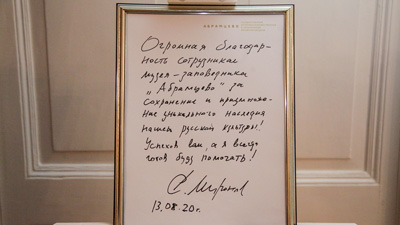 АБРАМЦЕВО
Огромная благодар-
ность сотрудникам
музея-заповедника
„Абрамцево" за
сохранение и преумноже-
ние уникального наследия
нашей русской культуры!
Успехов вам, а я всегда
готов буду помогать!
С. Миронов
13.08.20г.